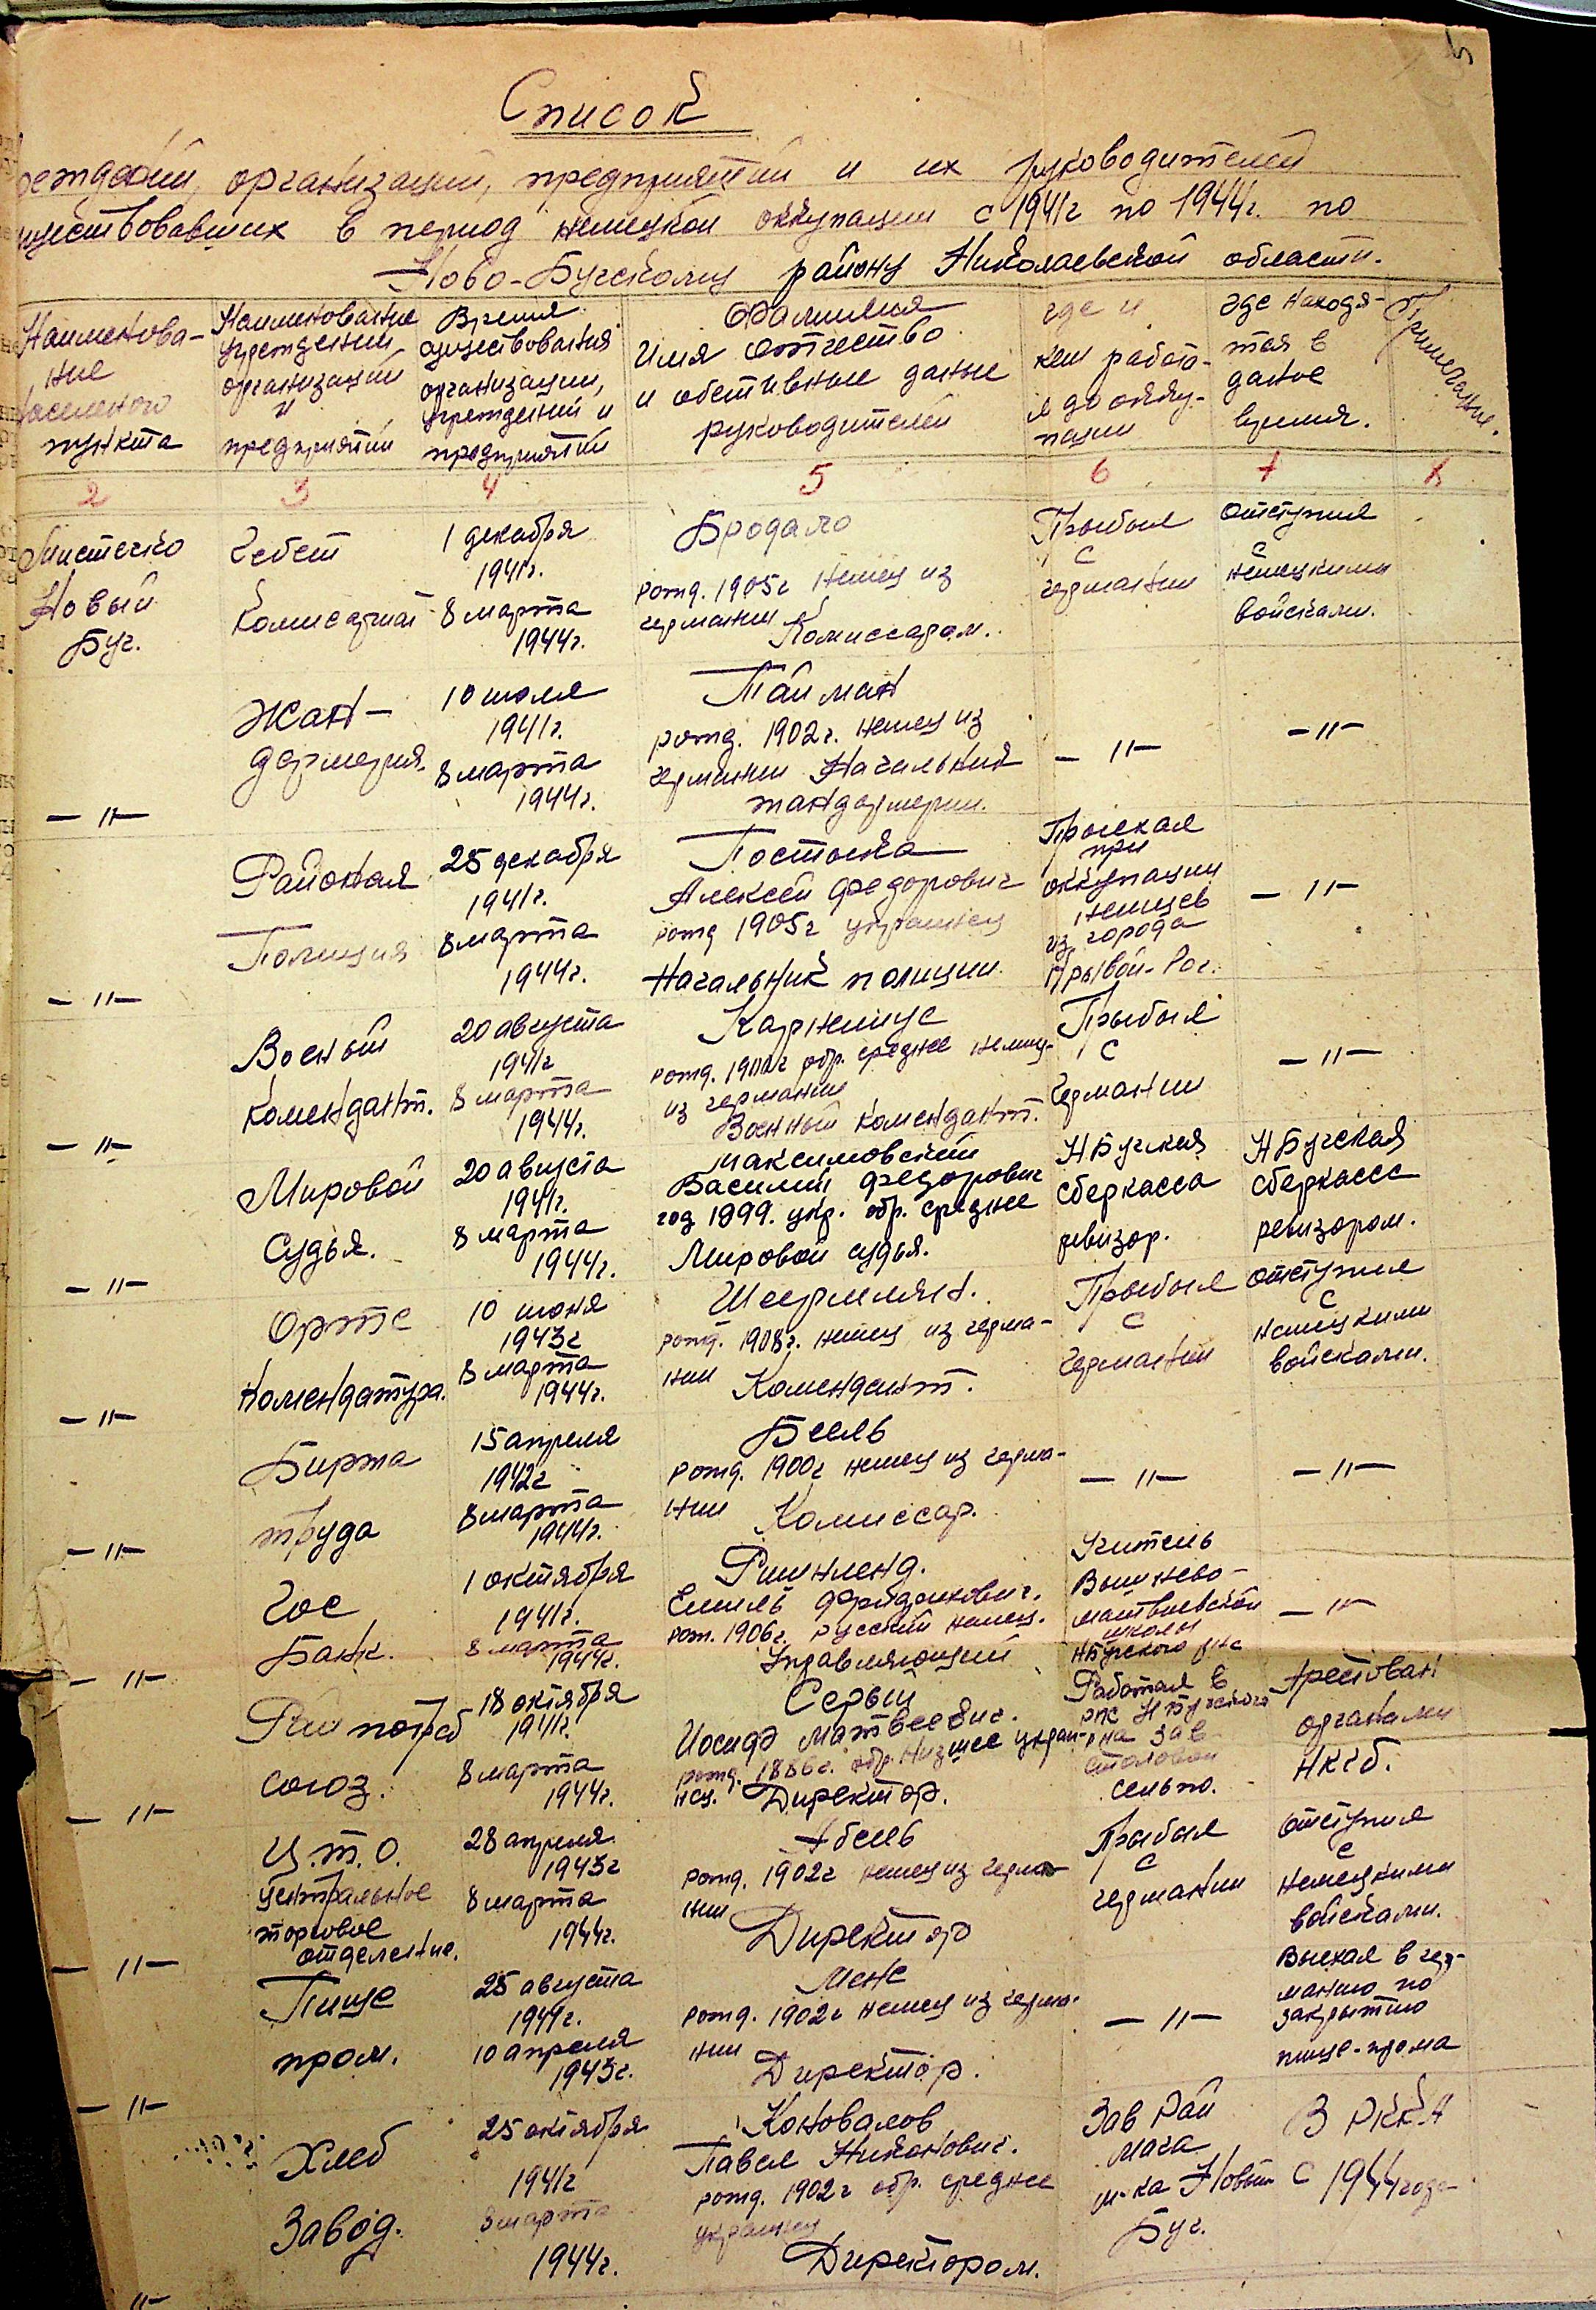 Список
реждений, организаций, предприятий и их руководителей
ществовавших в период немецкой оккупации с 1941г по 1944г. по
Ново-Бугскому району Николаевской области.
Наименова-
ние
населеного
пункта
Наименование
учреждений
организаций
и
предприятий
Время
существования
организации,
учреждений и
предприятий
Фамилия
имя отчество
и обстивные даные
руководителей
где и
кем работа-
л до окку-
пации
где находя-
тся в
даное
время.
Примечание.
2 3 4 5 6 7 8
Мистечко
Новый
Буг.
Гебет
Комисариат
1 декабря
1941г.
8 марта
1944г.
Бродало
рожд. 1905г немец из
германии
Комиссаром.
Прыбыл
с
германии
отступил
с
немецкими
войсками.
Жан-
дармерия.
10 июля
1941г.
8 марта
1944г.
Тайман
рожд. 1902г. немец из
германии Начальник
жандармерии.
— " —
— " —
— " —
Районая
Полиция
25 декабря
1941г.
8 марта
1944г.
Алексей Федорович
рожд 1905г украинец
Начальник полиции.
Приехал
при
оккупации
немцев
из города
Крывой-Рог.
— " —
— " —
Военый
комендант.
20 августа
1941г
8 марта
1944г.
рожд. 1900г обр. среднее немец-
из германии
Военный комендант.
Прыбыл
с
германии
— " —
— " —
Мировой
Судья.
20 августа
1941г.
8 марта
1944г.
Максимовский
Василий Федорович
год 1899. укр. обр. среднее
Мировой судья.
Н Бугская
сберкасса
ревизор.
Н Бугская
сберкасса
ревизором.
— " —
Ортс
комендатура.
10 июня
1943г
8 марта
1944г.
рожд. 1908г. немец из герма-
нии
Комендант.
Прыбыл
с
германии
отступил
с
немецкими
войсками.
— " —
Биржа
труда
15 апреля
1942г
8 марта
1944г.
Бель
рожд. 1900г немец из герма-
нии
Комиссар.
— " —
— " —
— " —
Гос
Банк.
1 октября
1941г.
8 марта
1944г.
Емиль Фридрихович.
рож. 1906г. русский немец.
Управляющий
Учитель
школы
НБугского р-на
— " —
— " —
Рай потреб
союз.
18 октября
1941г.
8 марта
1944г.
Серый
Иосиф Матвеевич.
рожд. 1886г. обр. низшее украи-
нец.
Директор.
Работал в
РПС Н Бугского
р-на зав
столовой
сельпо.
Арестован
органами
НКГБ.
— " —
Ц.т.О.
центральное
торговое
отделение.
28 апреля
1943г
8 марта
1944г.
Абель
рожд. 1902г немец из герма-
нии
Директор
Прыбыл
с
германии
отступил
с
немецкими
войсками.
— " —
Пище
пром.
25 августа
1941г.
10 апреля
1943г.
Мене
рожд. 1902г немец из герма-
нии
Директор.
— " —
Выехал в гер-
манию по
закрытию
пище-прома
— " —
Хлеб
Завод.
25 октября
1941г
8 марта
1944г.
Коновалов
Павел Никонович.
рожд. 1902г обр. среднее
украинец
Директором.
Зав Рай
Мага
м-ка Новый
Буг.
В РККА
с 1944 года
— " —